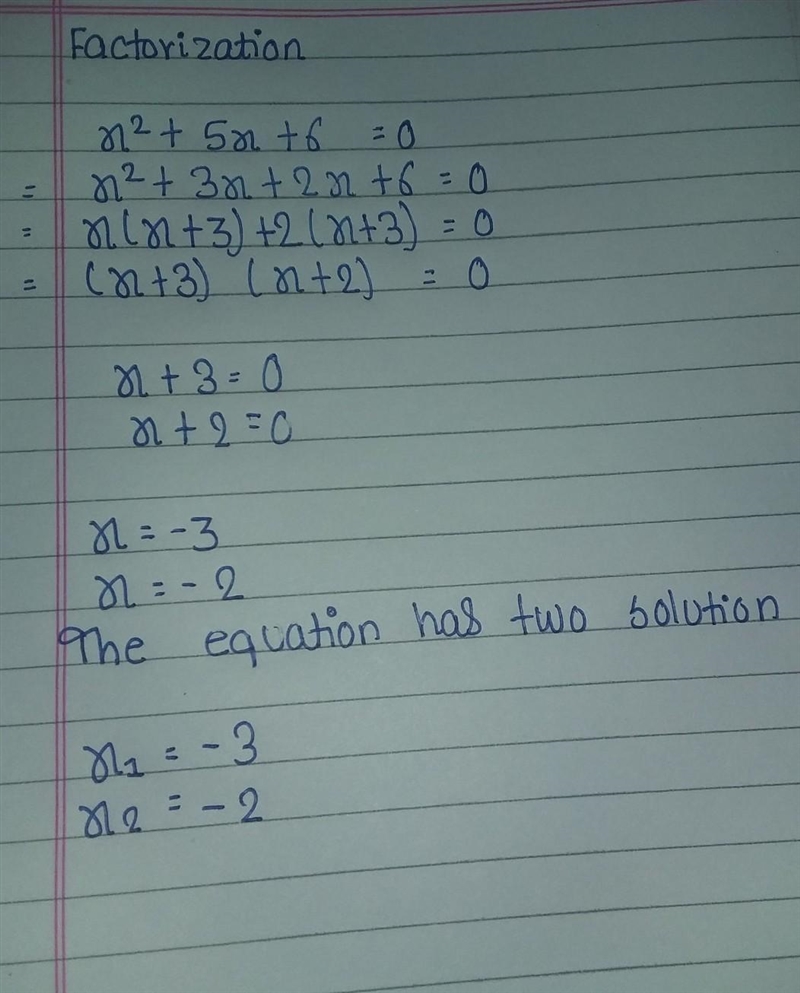 Factorization
x² + 5x + 6 = 0
= x² + 3x + 2x + 6 = 0
= x(x+3) + 2(x+3) = 0
= (x+3) (x+2) = 0
x + 3 = 0
x + 2 = 0
x = -3
x = -2
The equation has two solution
x₁ = -3
x₂ = -2